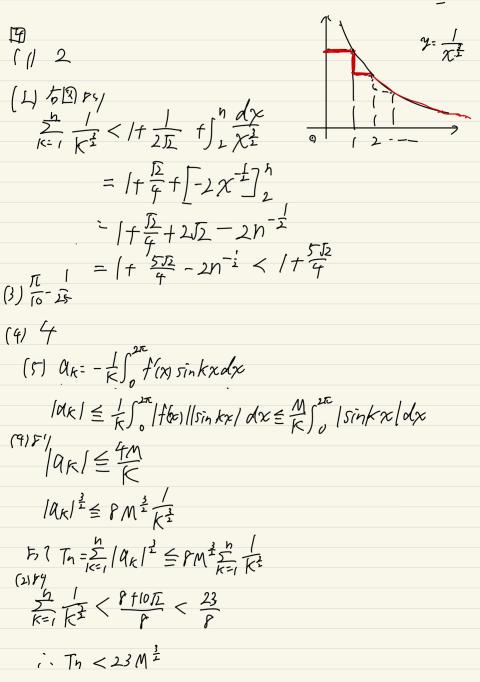 4
(1) 2
(2) 右図より
y = 1/x^{3/2}
0 1 2 ……
∑_{k=1}^{n} 1/k^{3/2} < 1 + 1/(2√2) + ∫_2^n dx/x^{3/2}
= 1 + √2/4 + [-2x^{-1/2}]_2^n
= 1 + √2/4 + 2√2 - 2n^{-1/2}
= 1 + 5√2/4 - 2n^{-1/2} < 1 + 5√2/4
(3) π/10 - 1/25
(4) 4
(5) a_k = -1/k ∫_0^{2π} f'(x) sin kx dx
|a_k| ≦ 1/k ∫_0^{2π} |f'(x)||sin kx| dx ≦ M/k ∫_0^{2π} |sin kx| dx
(4)より
|a_k| ≦ 4M/k
|a_k|^{3/2} ≦ 8M^{3/2} 1/k^{3/2}
よって T_n = ∑_{k=1}^{n} |a_k|^{3/2} ≦ 8M^{3/2} ∑_{k=1}^{n} 1/k^{3/2}
(2)より
∑_{k=1}^{n} 1/k^{3/2} < (8+10√2)/8 < 23/8
∴ T_n < 23M^{3/2}